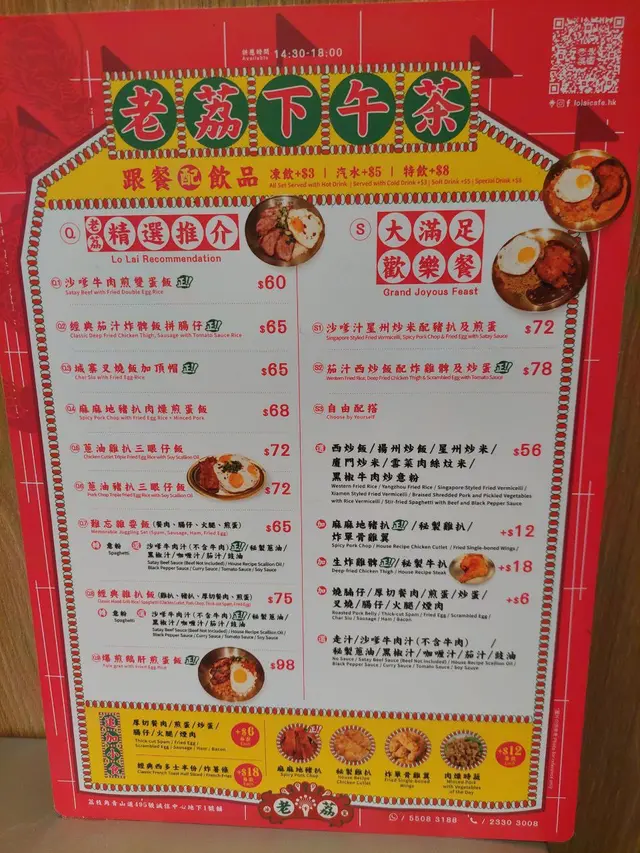 供應時間 14:30-18:00
Available
老荔下午茶
lolaicafe.hk
跟餐配飲品 凍飲+$3 | 汽水+$5 | 特飲+$8
All Set Served with Hot Drink | Served with Cold Drink +$3 | Soft Drink +$5 | Special Drink +$8
Q 老荔 精選推介
Lo Lai Recommendation
Q1 沙嗲牛肉煎雙蛋飯 正! $60
Satay Beef with Fried Double Egg Rice
Q2 經典茄汁炸髀飯拼腸仔 正! $65
Classic Deep Fried Chicken Thigh, Sausage with Tomato Sauce Rice
Q3 城寨叉燒飯加頂帽 正! $65
Char Siu with Fried Egg Rice
Q4 麻麻地豬扒肉燥煎蛋飯 $68
Spicy Pork Chop with Fried Egg Rice + Minced Pork
Q5 蔥油雞扒三眼仔飯 $72
Chicken Cutlet Triple Fried Egg Rice with Soy Scallion Oil
Q6 蔥油豬扒三眼仔飯 $72
Pork Chop Triple Fried Egg Rice with Soy Scallion Oil
Q7 難忘雜耍飯 (餐肉、腸仔、火腿、煎蛋) $65
Memorable Juggling Set (Spam, Sausage, Ham, Fried Egg)
轉 意粉
Spaghetti
選 沙嗲牛肉汁 (不含牛肉) 正! / 秘製蔥油 /
黑椒汁 / 咖喱汁 / 茄汁 / 豉油
Satay Beef Sauce (Beef Not Included) / House Recipe Scallion Oil /
Black Pepper Sauce / Curry Sauce / Tomato Sauce / Soy Sauce
Q8 經典雜扒飯 (雞扒、豬扒、厚切餐肉、煎蛋) $75
轉 意粉
Spaghetti
選 沙嗲牛肉汁 (不含牛肉) 正! / 秘製蔥油 /
黑椒汁 / 咖喱汁 / 茄汁 / 豉油
Satay Beef Sauce (Beef Not Included) / House Recipe Scallion Oil /
Black Pepper Sauce / Curry Sauce / Tomato Sauce / Soy Sauce
Q9 爆煎鵝肝煎蛋飯 正! $98
Foie gras with Fried Egg Rice
S 大滿足歡樂餐
Grand Joyous Feast
S1 沙嗲汁星州炒米配豬扒及煎蛋 $72
Singapore-Styled Fried Vermicelli, Spicy Pork Chop & Fried Egg with Satay Sauce
S2 茄汁西炒飯配炸雞髀及炒蛋 正! $78
Western Fried Rice, Deep Fried Chicken Thigh & Scrambled Egg with Tomato Sauce
S3 自由配搭
Choose by Yourself
選 西炒飯 / 揚州炒飯 / 星州炒米 / $56
廈門炒米 / 雪菜肉絲炆米 /
黑椒牛肉炒意粉
Western Fried Rice / Yangzhou Fried Rice / Singapore-Styled Fried Vermicelli /
Xiamen Styled Fried Vermicelli / Braised Shredded Pork and Pickled Vegetables
with Rice Vermicelli / Stir-fried Spaghetti with Beef and Black Pepper Sauce
加 麻麻地豬扒 正! / 秘製雞扒 / +$12
炸單骨雞翼
Spicy Pork Chop / House Recipe Chicken Cutlet / Fried Single-boned Wings /
加 生炸雞髀 正! / 秘製牛扒 +$18
Deep-fried Chicken Thigh / House Recipe Steak
加 燒腩仔 / 厚切餐肉 / 煎蛋 / 炒蛋 / +$6
叉燒 / 腸仔 / 火腿 / 煙肉
Roasted Pork Belly / Thick-cut Spam / Fried Egg / Scrambled Egg /
Char Siu / Sausage / Ham / Bacon
選 走汁 / 沙嗲牛肉汁 (不含牛肉) /
秘製蔥油 / 黑椒汁 / 咖喱汁 / 茄汁 / 豉油
No Sauce / Satay Beef Sauce (Beef Not Included) / House Recipe Scallion Oil /
Black Pepper Sauce / Curry Sauce / Tomato Sauce / Soy Sauce
厚切餐肉 / 煎蛋 / 炒蛋 / +$6
腸仔 / 火腿 / 煙肉
Thick-cut Spam / Fried Egg /
Scrambled Egg / Sausage / Ham / Bacon
經典西多士半份 / 炸薯條 +$18
Classic French Toast Half Sliced / French Fries
麻麻地豬扒
Spicy Pork Chop
秘製雞扒
House Recipe
Chicken Cutlet
炸單骨雞翼
Fried Single-boned
Wings
肉燥時蔬
Minced Pork
with Vegetables
of the Day
+$12
老荔
荔枝角青山道495號誠信中心地下1號舖
/ 5508 3188 / 2330 3008